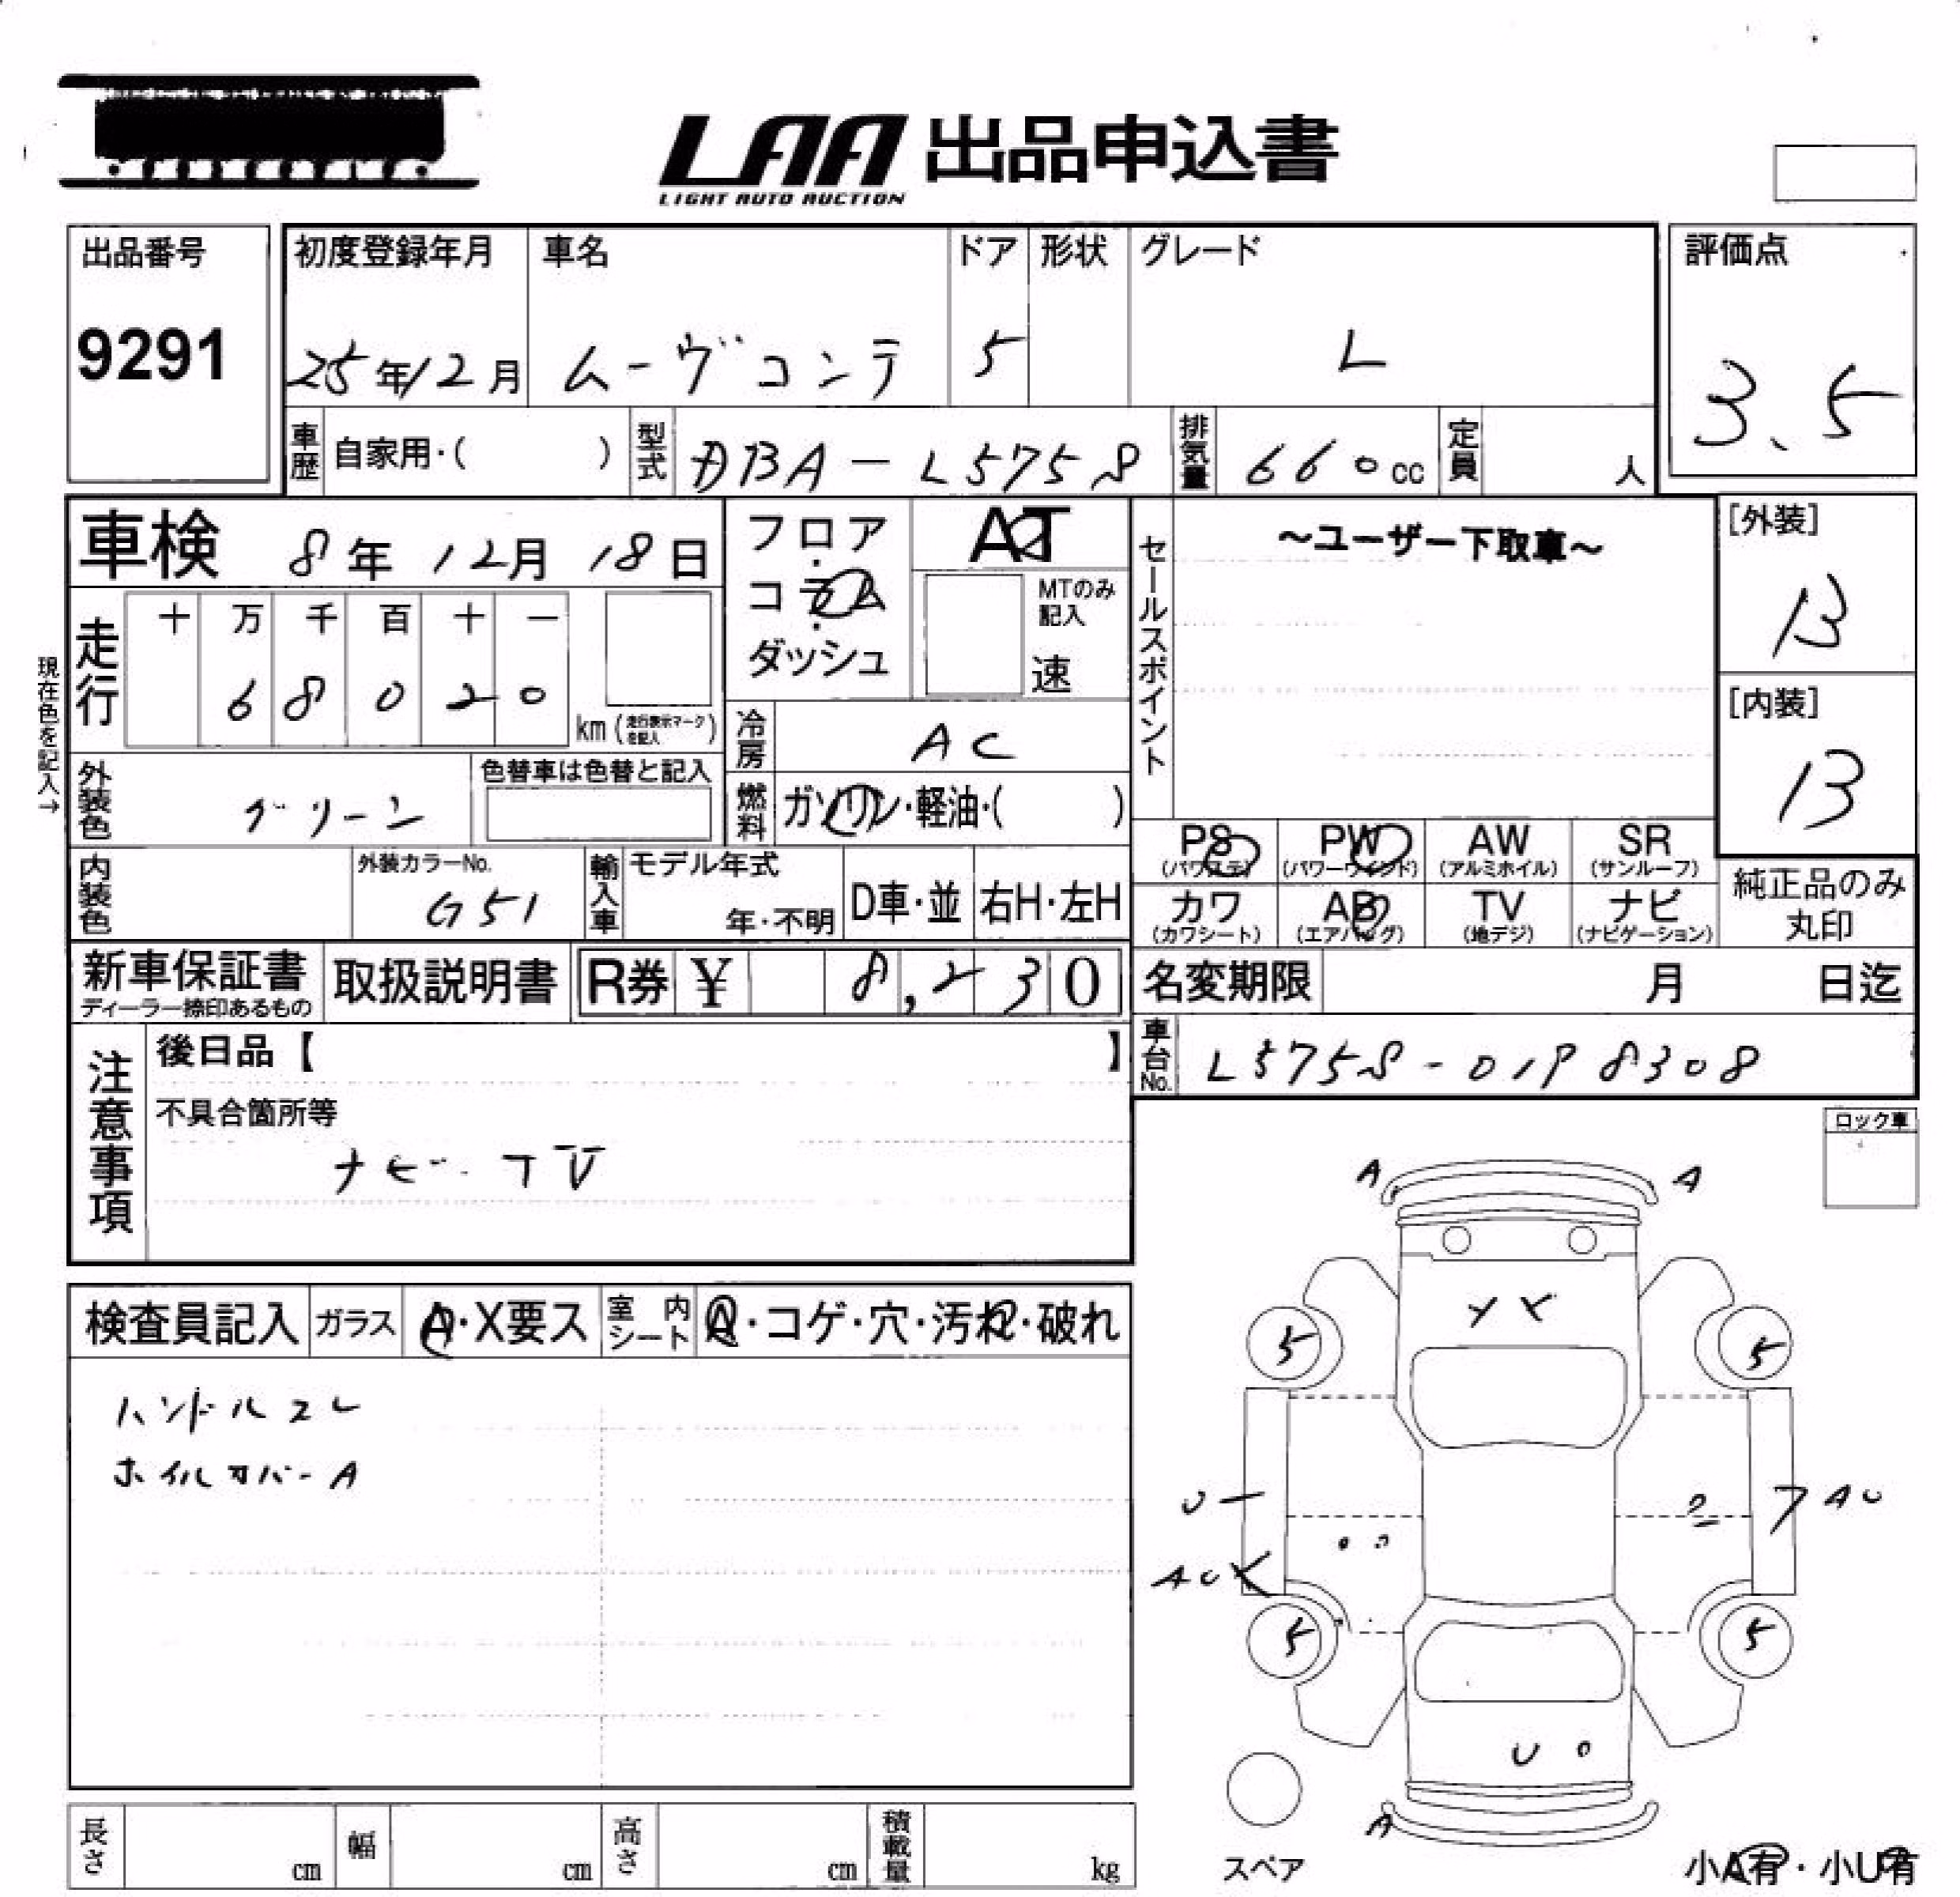 LAA 出品申込書
LIGHT AUTO AUCTION
出品番号
9291
初度登録年月
25年12月
車名
ムーヴコンテ
ドア
5
形状
グレード
L
評価点
3.5
車歴 自家用・( )
型式 DBA-L575S
排気量 660cc
定員 人
車検 8年12月18日
フロア・コラム・ダッシュ
AT
MTのみ記入
速
セールスポイント
~ユーザー下取車~
[外装]
B
[内装]
B
現在色を記入→
走行
十 万 千 百 十 一
6 8 0 2 0
km (走行表示マークを記入)
冷房 AC
外装色 グリーン
色替車は色替と記入
燃料 ガソリン・軽油・( )
内装色
外装カラーNo.
G51
輸入車
モデル年式
年・不明
D車・並
右H・左H
PS (パワステ)
PW (パワーウィンド)
AW (アルミホイル)
SR (サンルーフ)
カワ (カワシート)
AB (エアバッグ)
TV (地デジ)
ナビ (ナビゲーション)
純正品のみ丸印
新車保証書
ディーラー捺印あるもの
取扱説明書
R券 ¥ 8,230
名変期限 月 日迄
注意事項
後日品【 】
不具合箇所等
ナビ・TV
車台No. L575S-0198308
ロック車
検査員記入
ガラス A・X要ス
室内シート A・コゲ・穴・汚れ・破れ
ハンドルスレ
ホイルカバーA
A A
Y Y
5 5
U
AU
AU
5 5
U
A
スペア
小A有・小U有
長さ cm
幅 cm
高さ cm
積載量 kg